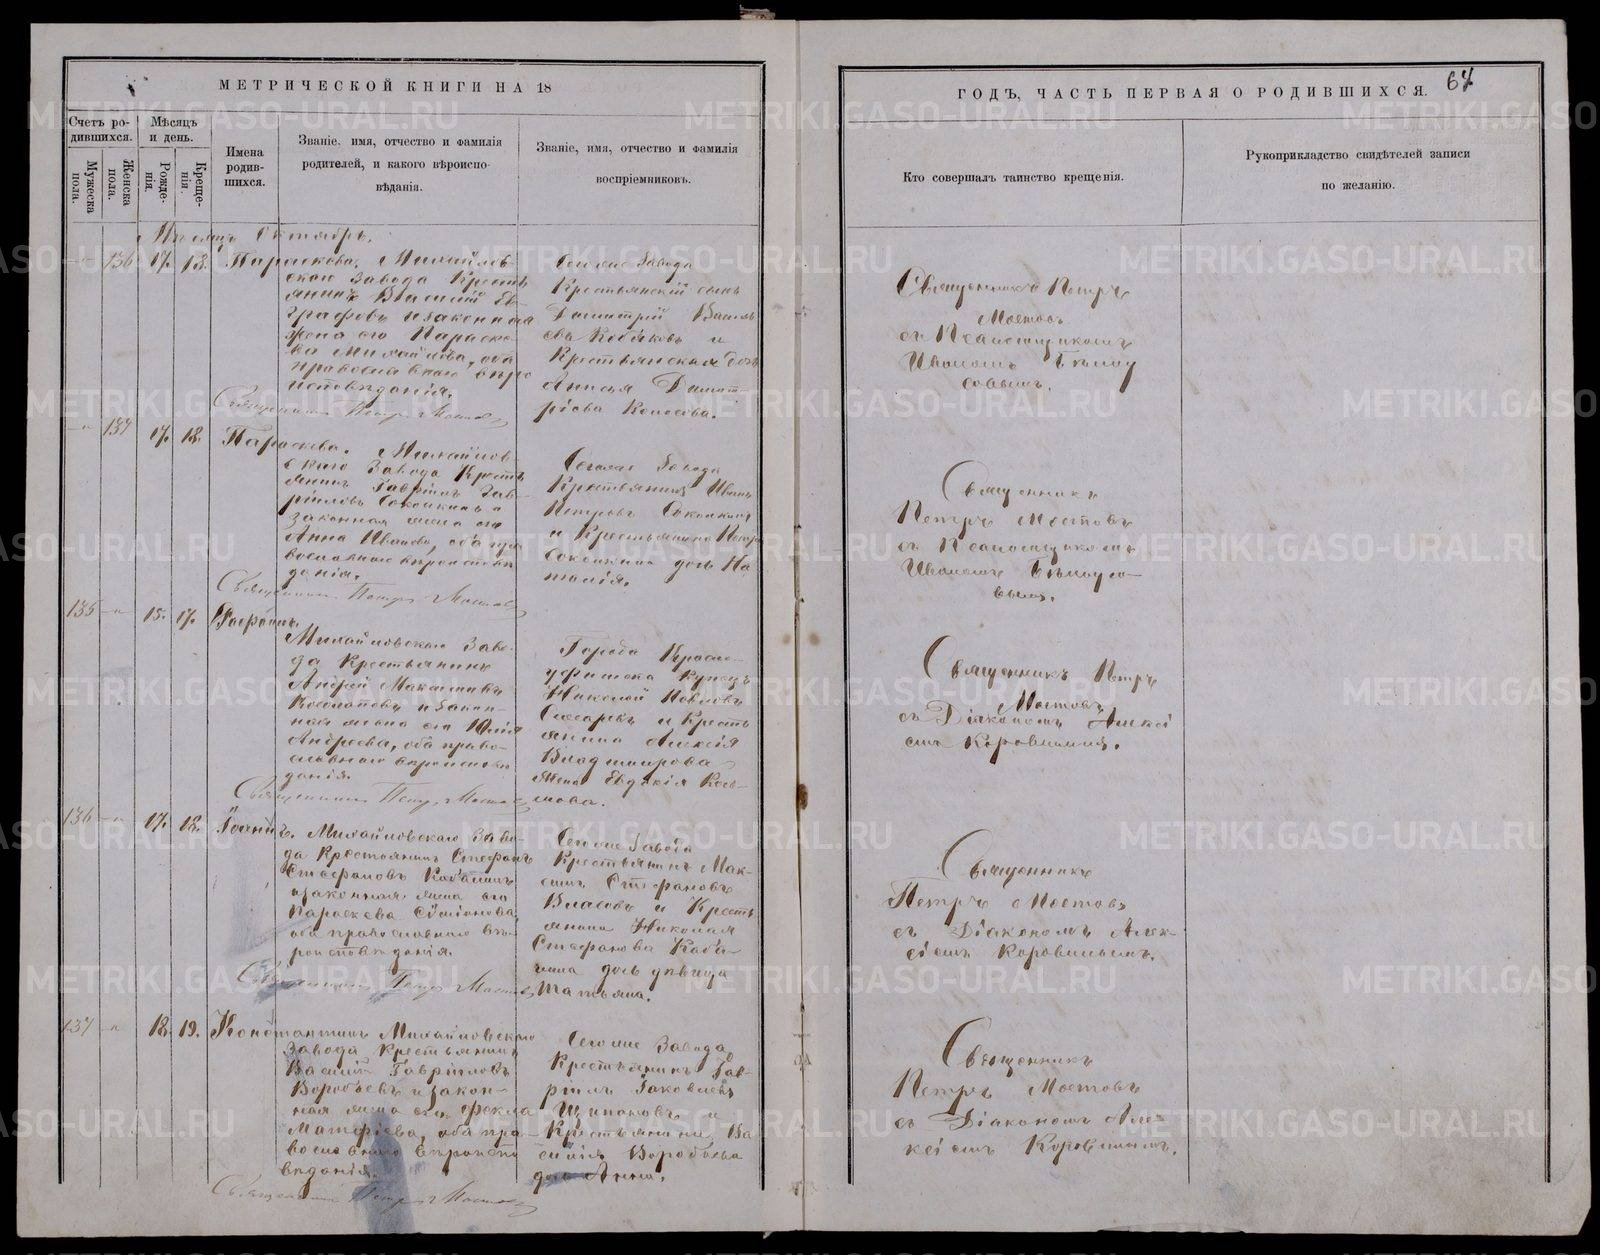 МЕТРИЧЕСКОЙ КНИГИ НА 18
Счетъ ро-
дившихся.
Мужеска
пола.
Женска
пола.
Мѣсяцъ
и день.
Рожде-
нія.
Креще-
нія.
Имена
родив-
шихся.
Званіе, имя, отчество и фамилія
родителей, и какого вѣроиспо-
вѣданія.
Званіе, имя, отчество и фамилія
воспріемниковъ.
Октябрь.
136 17. 18. Параскева. Михайлов-
скаго Завода Кресть
янинъ Василій Ев-
графовъ и законная
жена его Параске-
ва Михайлова, оба
православнаго вѣро
исповѣданія.
Священникъ Петръ Мостовъ
Сего же Завода
Крестьянскій сынъ
Димитрій Василь
евъ Кобяковъ и
Крестьянская дочь
Анисья Димит-
ріева
137 17. 18. Параскева. Михайлов-
скаго Завода Кресть
янинъ Гавріилъ Гав-
ріиловъ и
законная жена его
Анна Иванова, оба пра
вославнаго вѣроисповѣ
данія.
Священникъ Петръ Мостовъ
Сего же Завода
Крестьянинъ Иванъ
Петровъ
и Крестьянина Петра
дочь На
талія.
135 15. 17.
Михайловскаго Заво-
да Крестьянинъ
Андрей
и закон-
ная жена его Юлія
Андреева, оба право-
славнаго вѣроисповѣ
данія.
Священникъ Петръ Мостовъ
Города Красно-
уфимска Купецъ
Николай Павловъ
и Кресть
янина Алексія
Владимірова
жена Евдокія Козь-
мова.
136 17. 18. Іоаннъ. Михайловскаго Заво-
да Крестьянинъ Стефанъ
Стефановъ
и законная жена его
Параскева
оба православнаго вѣ-
роисповѣданія.
Священникъ Петръ Мостовъ
Сего же Завода
Крестьянинъ Мак-
симъ Стефановъ
Власовъ и Кресть
янина Николая
Стефанова
дочь дѣвица
Татьяна.
137 18. 19. Константинъ Михайловскаго
Завода Крестьянинъ
Василій Гавріиловъ
Воробьевъ и закон-
ная жена его Фекла
Матфіева, оба пра-
вославнаго вѣроиспо
вѣданія.
Священникъ Петръ Мостовъ
Сего же Завода
Крестьянинъ Гав-
ріилъ Іаковлевъ
Щипановъ и
Крестьянина Ва
силія Воробьева
дочь Анна.
ГОДЪ, ЧАСТЬ ПЕРВАЯ О РОДИВШИХСЯ.
67
Кто совершалъ таинство крещенія.
Рукоприкладство свидѣтелей записи
по желанію.
Священникъ Петръ
Мостовъ
съ Псаломщикомъ
Иваномъ Бѣлоу
совымъ.
Священникъ
Петръ Мостовъ
съ Псаломщикомъ
Иваномъ Бѣлоусо-
вымъ.
Священникъ Петръ
Мостовъ
съ Діакономъ Алексі
емъ Коровинымъ.
Священникъ
Петръ Мостовъ
съ Діакономъ Алек-
сіемъ Коровинымъ.
Священникъ
Петръ Мостовъ
съ Діакономъ Але-
ксіемъ Коровинымъ.
METRIKI.GASO-URAL.RU